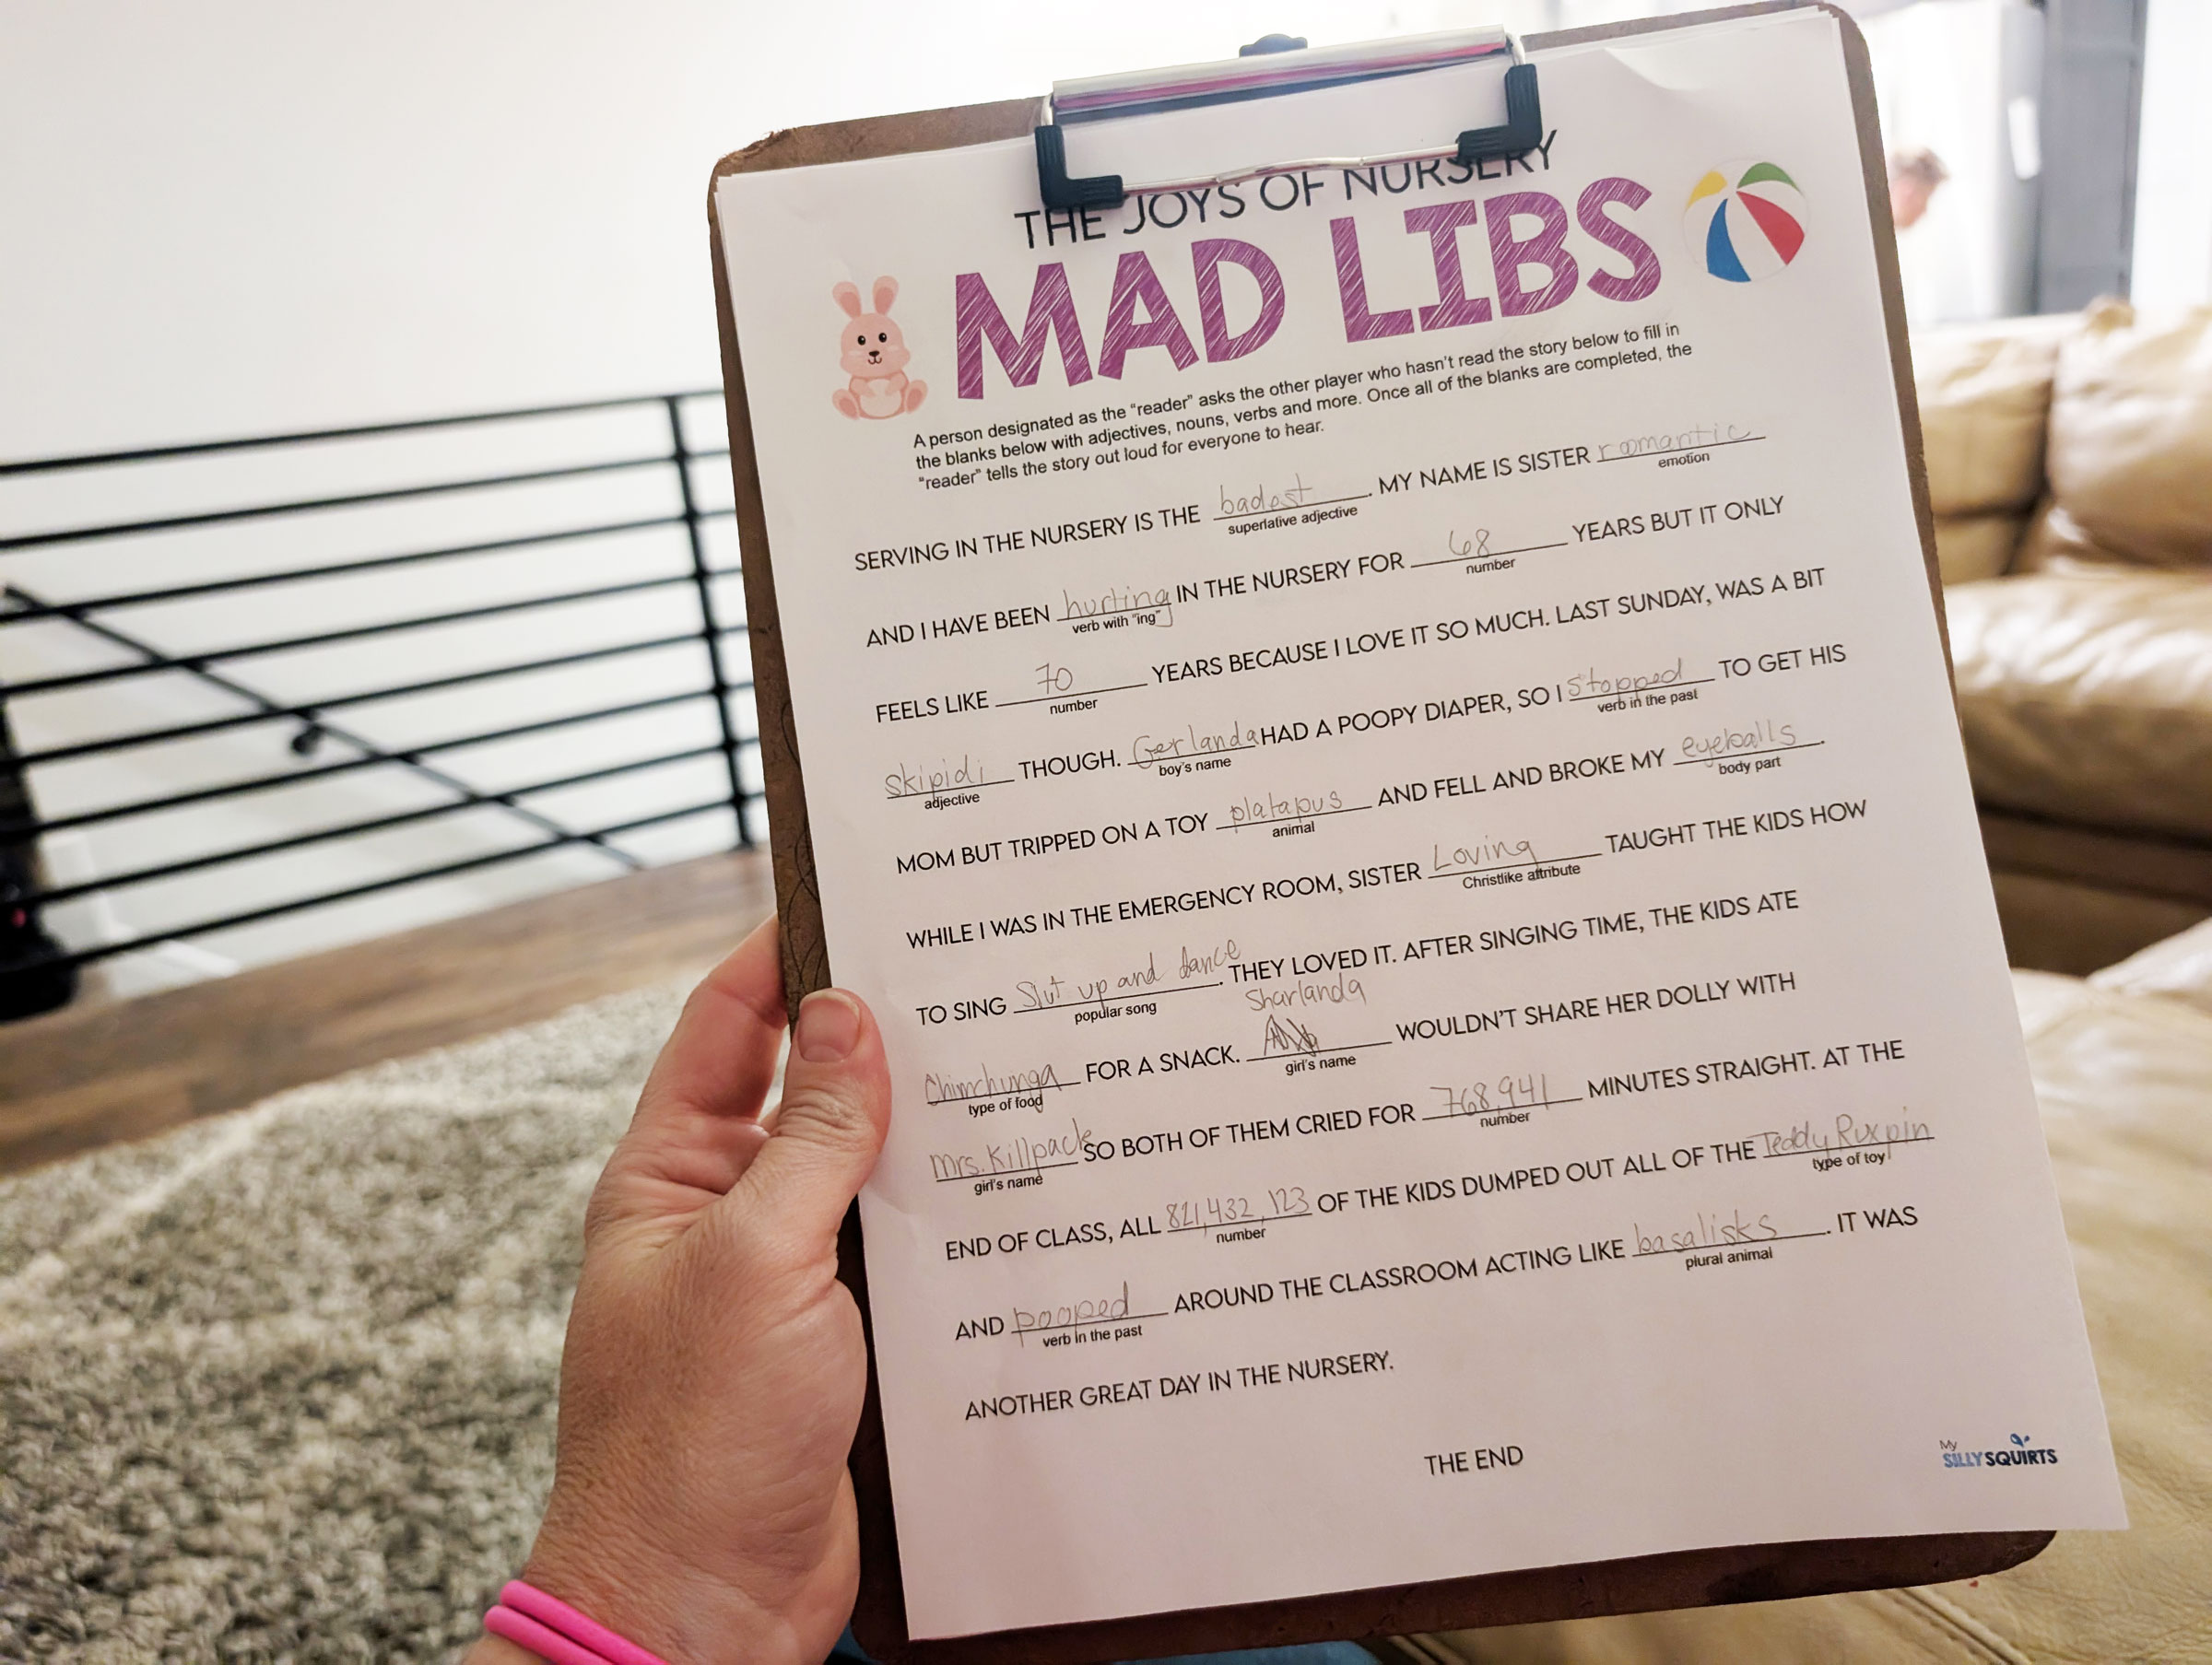 THE JOYS OF NURSERY
MAD LIBS
A person designated as the “reader” asks the other player who hasn’t read the story below to fill in
the blanks below with adjectives, nouns, verbs and more. Once all of the blanks are completed, the
“reader” tells the story out loud for everyone to hear.
SERVING IN THE NURSERY IS THE badest. MY NAME IS SISTER romantic
superlative adjective emotion
AND I HAVE BEEN hurting IN THE NURSERY FOR 68 YEARS BUT IT ONLY
verb with “ing” number
FEELS LIKE 70 YEARS BECAUSE I LOVE IT SO MUCH. LAST SUNDAY, WAS A BIT
number
skipidi THOUGH. Gerlanda HAD A POOPY DIAPER, SO I stopped TO GET HIS
adjective boy's name verb in the past
MOM BUT TRIPPED ON A TOY platapus AND FELL AND BROKE MY eyeballs.
animal body part
WHILE I WAS IN THE EMERGENCY ROOM, SISTER Loving TAUGHT THE KIDS HOW
Christlike attribute
TO SING Slut up and dance. THEY LOVED IT. AFTER SINGING TIME, THE KIDS ATE
popular song
Sharlanda
Chimchunga FOR A SNACK. WOULDN'T SHARE HER DOLLY WITH
type of food girl's name
Mrs. Killpack SO BOTH OF THEM CRIED FOR 768,941 MINUTES STRAIGHT. AT THE
girl's name number
END OF CLASS, ALL 821,432,123 OF THE KIDS DUMPED OUT ALL OF THE Teddy Ruxpin
number type of toy
AND pooped AROUND THE CLASSROOM ACTING LIKE basalisks. IT WAS
verb in the past plural animal
ANOTHER GREAT DAY IN THE NURSERY.
THE END
My
SILLY SQUIRTS